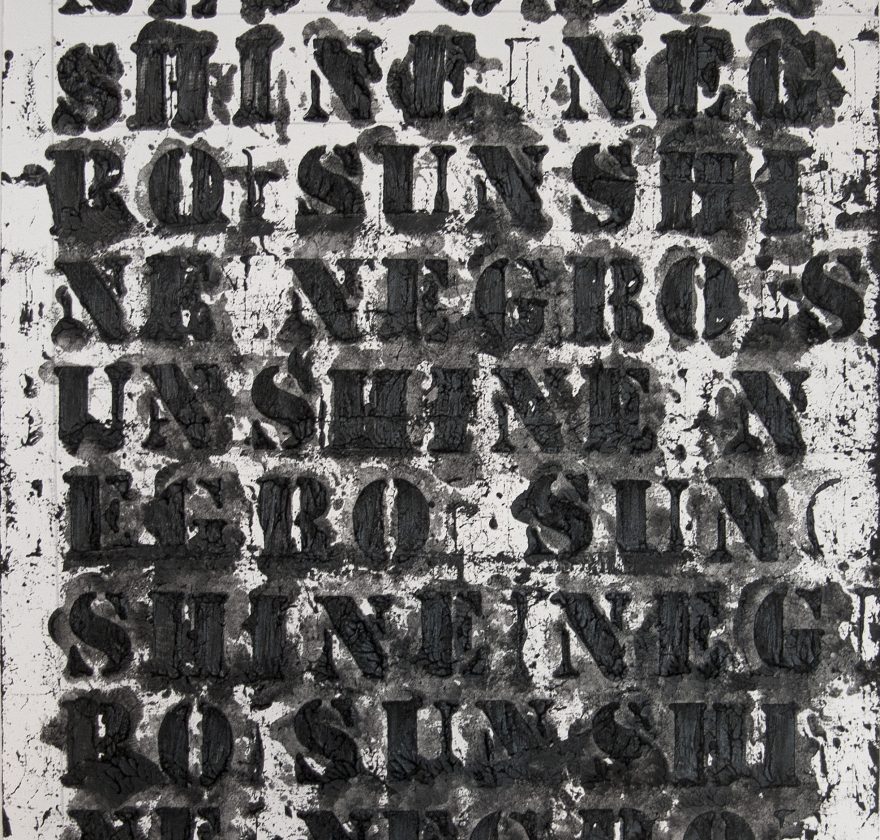 SHINE NEG
RO SUNSHI
NE NEGRO S
UNSHINE N
EGRO SUN
SHINE NEG
RO SUNSHI
NE NEGRO